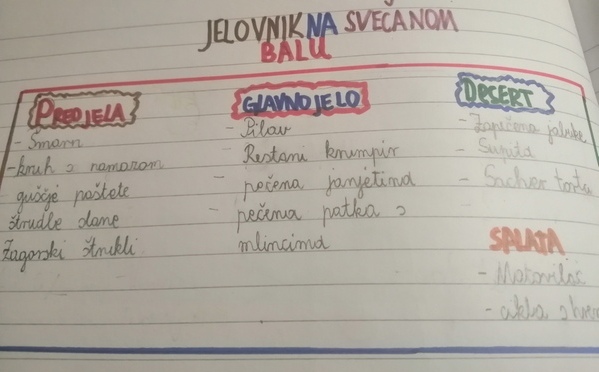 JELOVNIK NA SVEČANOM
BALU
PREDJELA
- Šmarn
- kruh s namazom
- guščje paštete
štrudle slane
Zagorski štrukli
GLAVNO JELO
- Pilav
- Restani krumpir
- pečena janjetina
- pečena patka s
mlincima
DESERT
- Zapečena jabuke
- Šunita
- Sacher torta
SALATA
- Matovilac
- cikla s hren